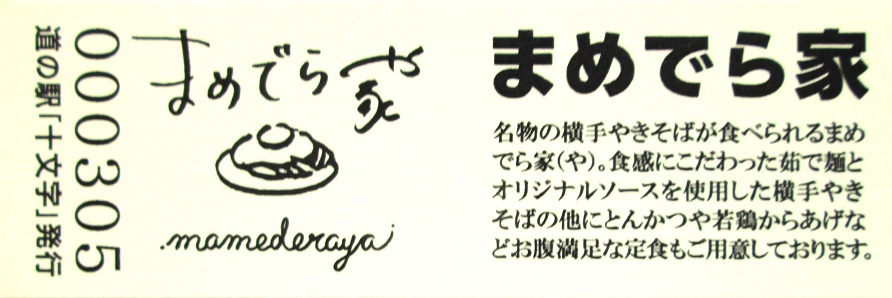 道の駅「十文字」発行
000305
まめでら家
や
mamederaya
まめでら家
名物の横手やきそばが食べられるまめ
でら家(や)。食感にこだわった茹で麺と
オリジナルソースを使用した横手やき
そばの他にとんかつや若鶏からあげな
どお腹満足な定食もご用意しております。